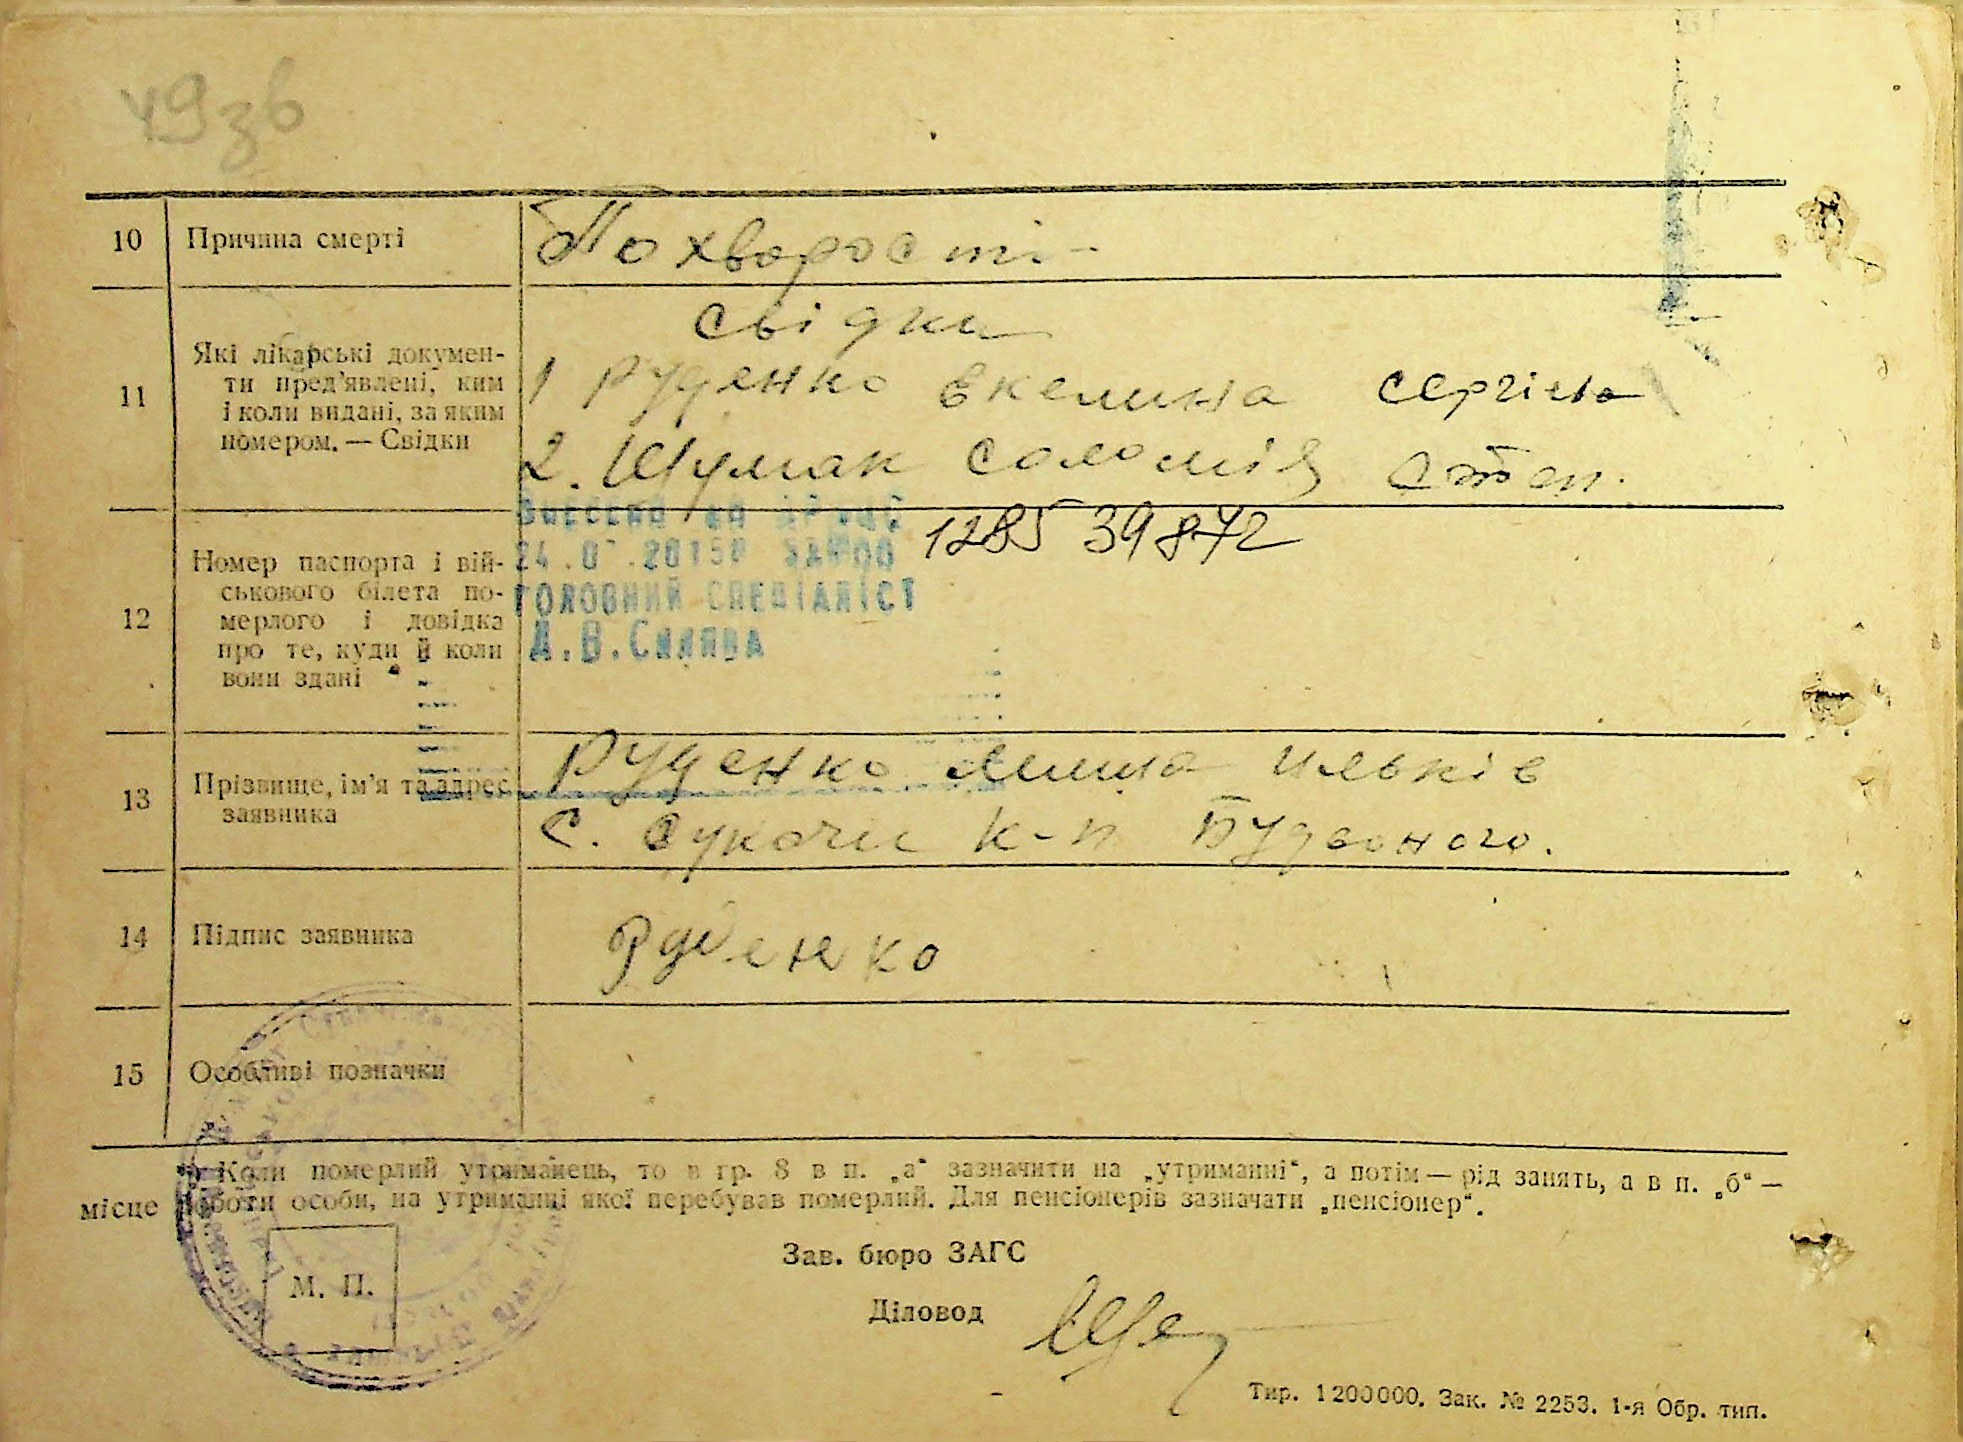 49зв
10 Причина смерті По хворості -
Свідки
11 Які лікарські докумен-
ти пред'явлені, ким
і коли видані, за яким
номером. — Свідки
1 Руденко Екелина Сергіева
2. Шулмак Соломія Степ.
1285 39872
12 Номер паспорта і вій-
ськового білета по-
мерлого і довідка
про те, куди й коли
вони здані
ГОЛОВНИЙ СПЕЦІАЛІСТ
13 Прізвище, ім'я та адрес
заявника
Руденко Ильків
С. Сукачи к-п Будьоного.
14 Підпис заявника Руденко
15 Особливі позначки
Коли померлий утриманець, то в гр. 8 в п. „а“ зазначити на „утриманні“, а потім — рід занять, а в п. „б“ —
місце роботи особи, на утриманні якої перебував померлий. Для пенсіонерів зазначати „пенсіонер“.
Зав. бюро ЗАГС
М. П.
Діловод
Тир. 1200000. Зак. № 2253. 1-я Обр. тип.